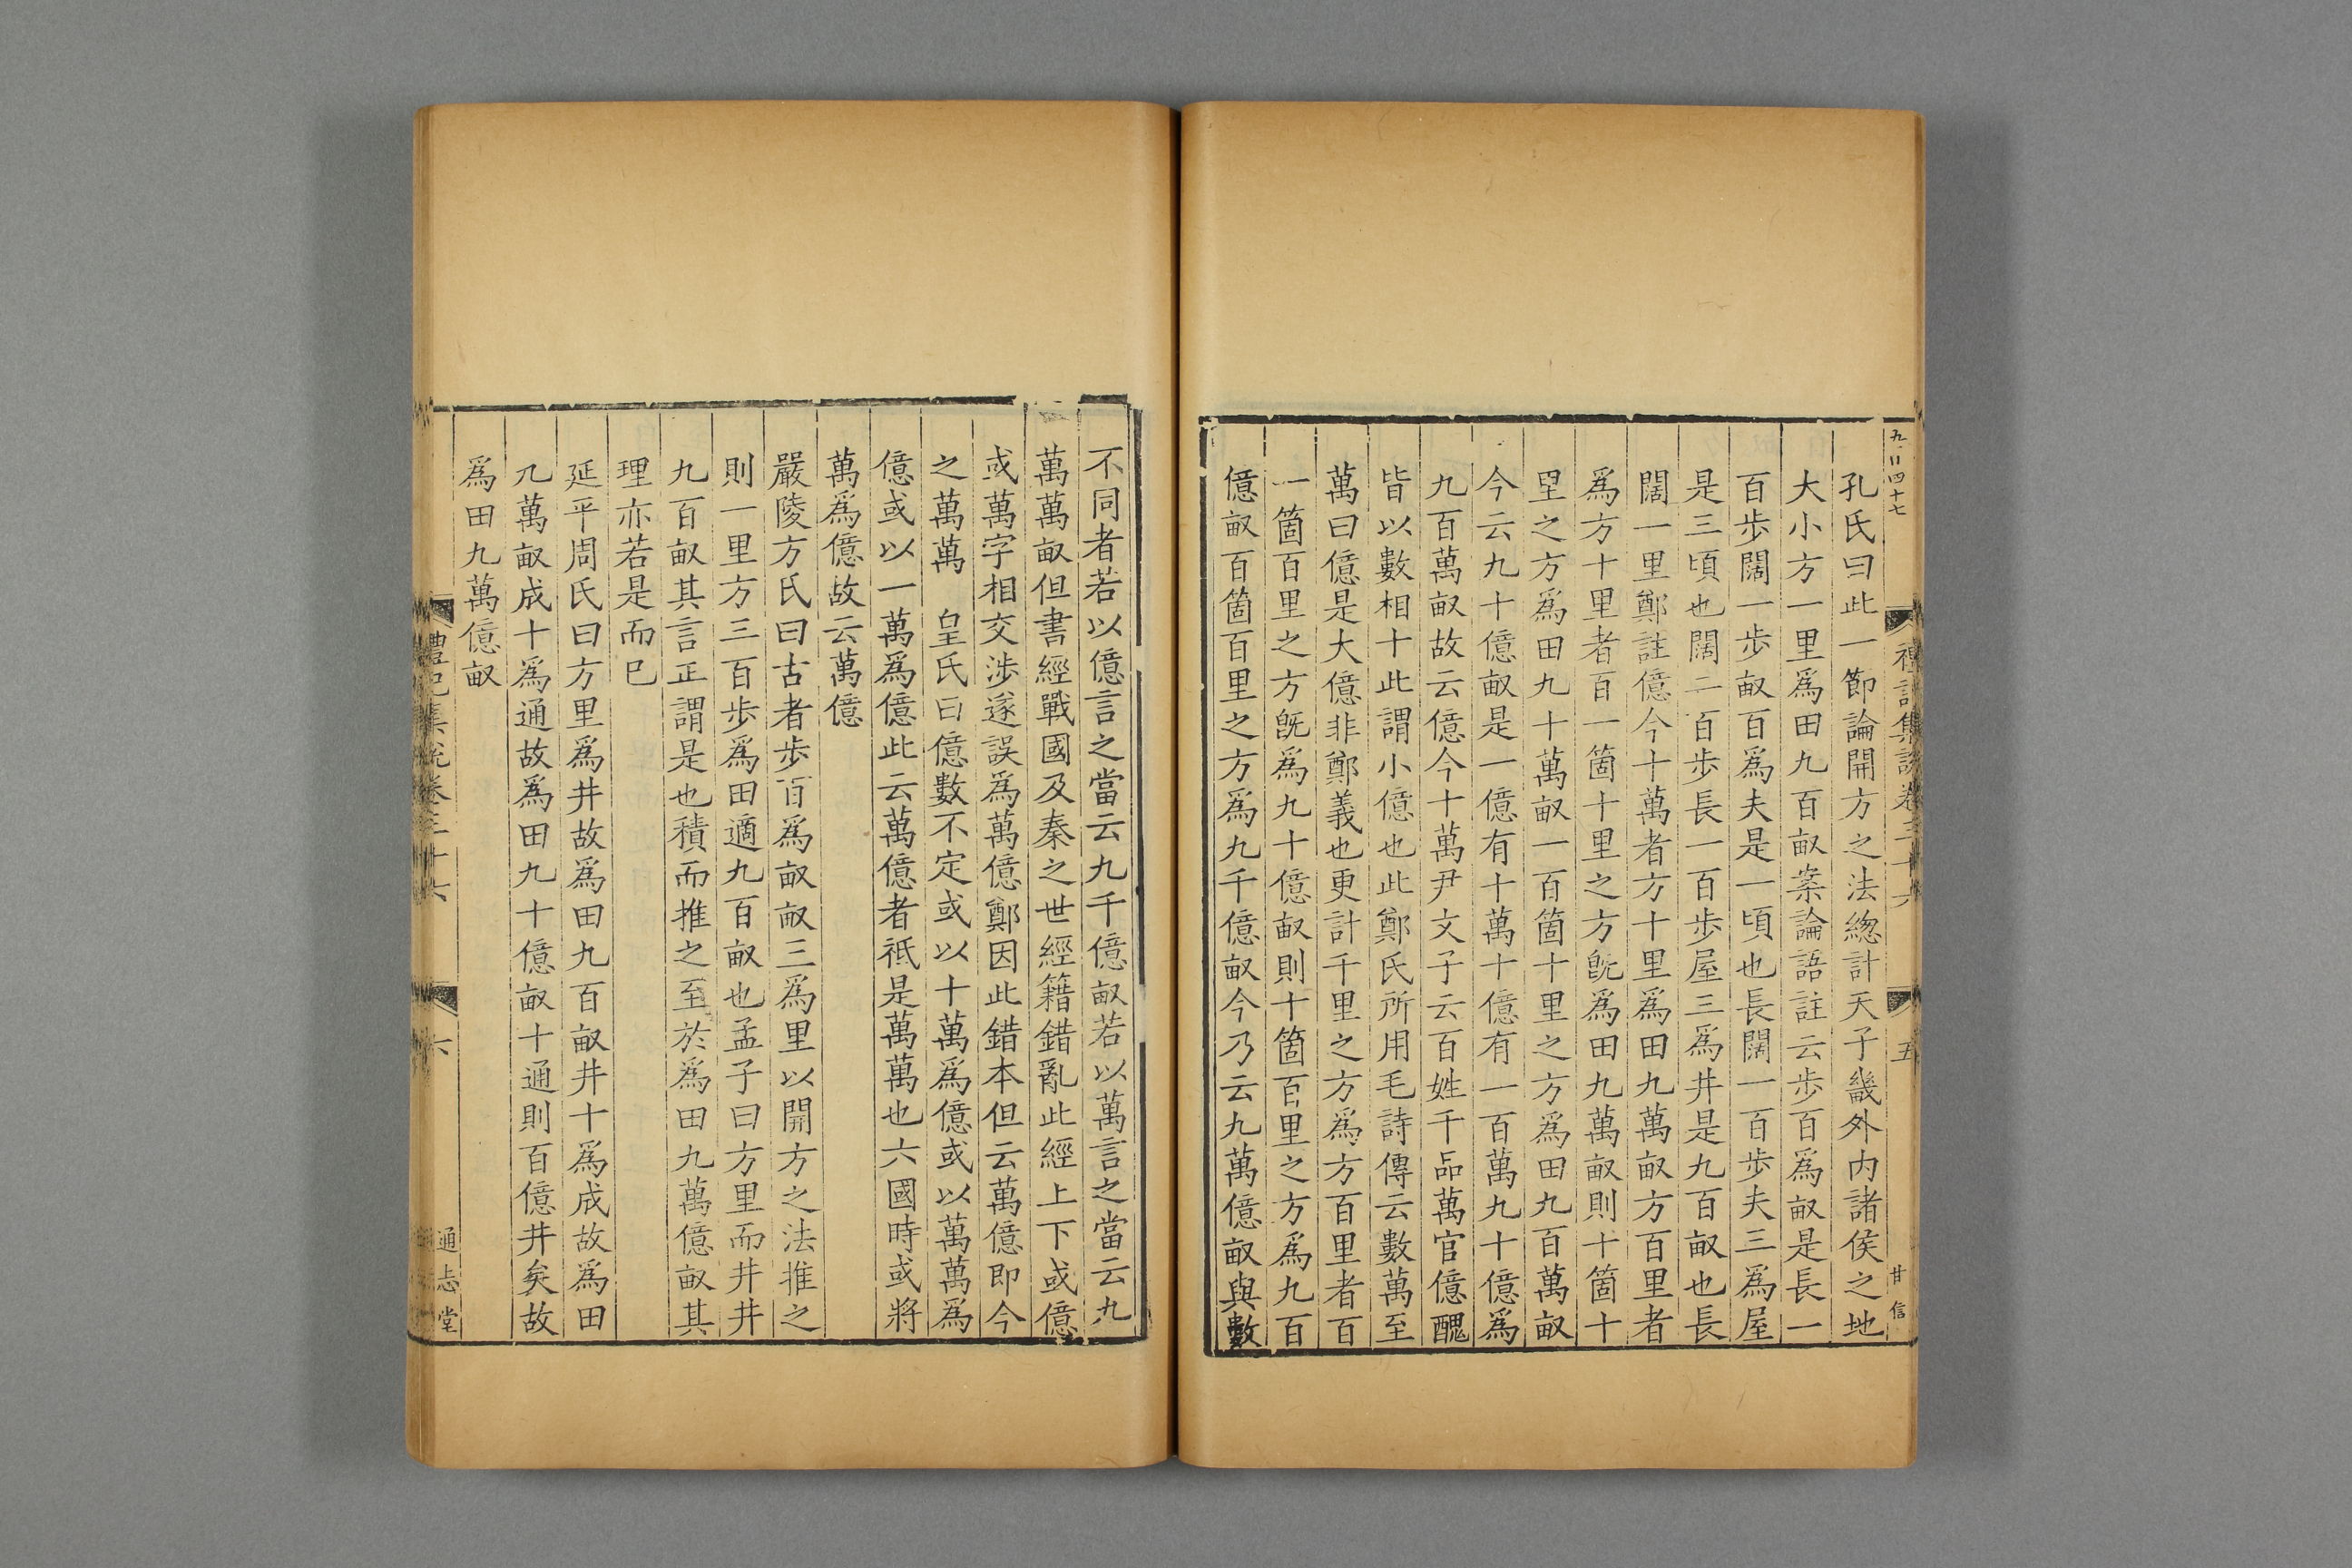 九百四十七
禮記集說卷三十六
五
甘信
孔氏曰此一節論開方之法緫計天子畿外内諸侯之地
大小方一里爲田九百畝案論語註云步百爲畝是長一
百步闊一步畝百爲夫是一頃也長闊一百步夫三爲屋
是三頃也闊三百步長一百步屋三爲井是九百畝也長
闊一里鄭註億今十萬者方十里爲田九萬畝方百里者
爲方十里者百一箇十里之方旣爲田九萬畝則十箇十
里之方爲田九十萬畝一百箇十里之方爲田九百萬畝
今云九十億畝是一億有十萬十億有一百萬九十億爲
九百萬畝故云億今十萬尹文子云百姓千品萬官億醜
皆以數相十此謂小億也此鄭氏所用毛詩傳云數萬至
萬曰億是大億非鄭義也更計千里之方爲方百里者百
一箇百里之方旣爲九十億畝則十箇百里之方爲九百
億畝百箇百里之方爲九千億畝今乃云九萬億畝與數
不同者若以億言之當云九千億畝若以萬言之當云九
萬萬畝但書經戰國及秦之世經籍錯亂此經上下或億
或萬字相交涉遂誤爲萬億鄭因此錯本但云萬億即今
之萬萬　皇氏曰億數不定或以十萬爲億或以萬萬爲
億或以一萬爲億此云萬億者祗是萬萬也六國時或將
萬爲億故云萬億
嚴陵方氏曰古者步百爲畝畝三爲里以開方之法推之
則一里方三百步爲田適九百畝也孟子曰方里而井井
九百畝其言正謂是也積而推之至於爲田九萬億畝其
理亦若是而已
延平周氏曰方里爲井故爲田九百畝井十爲成故爲田
九萬畝成十爲通故爲田九十億畝十通則百億井矣故
爲田九萬億畝
禮記集說卷三十六
六
通志堂